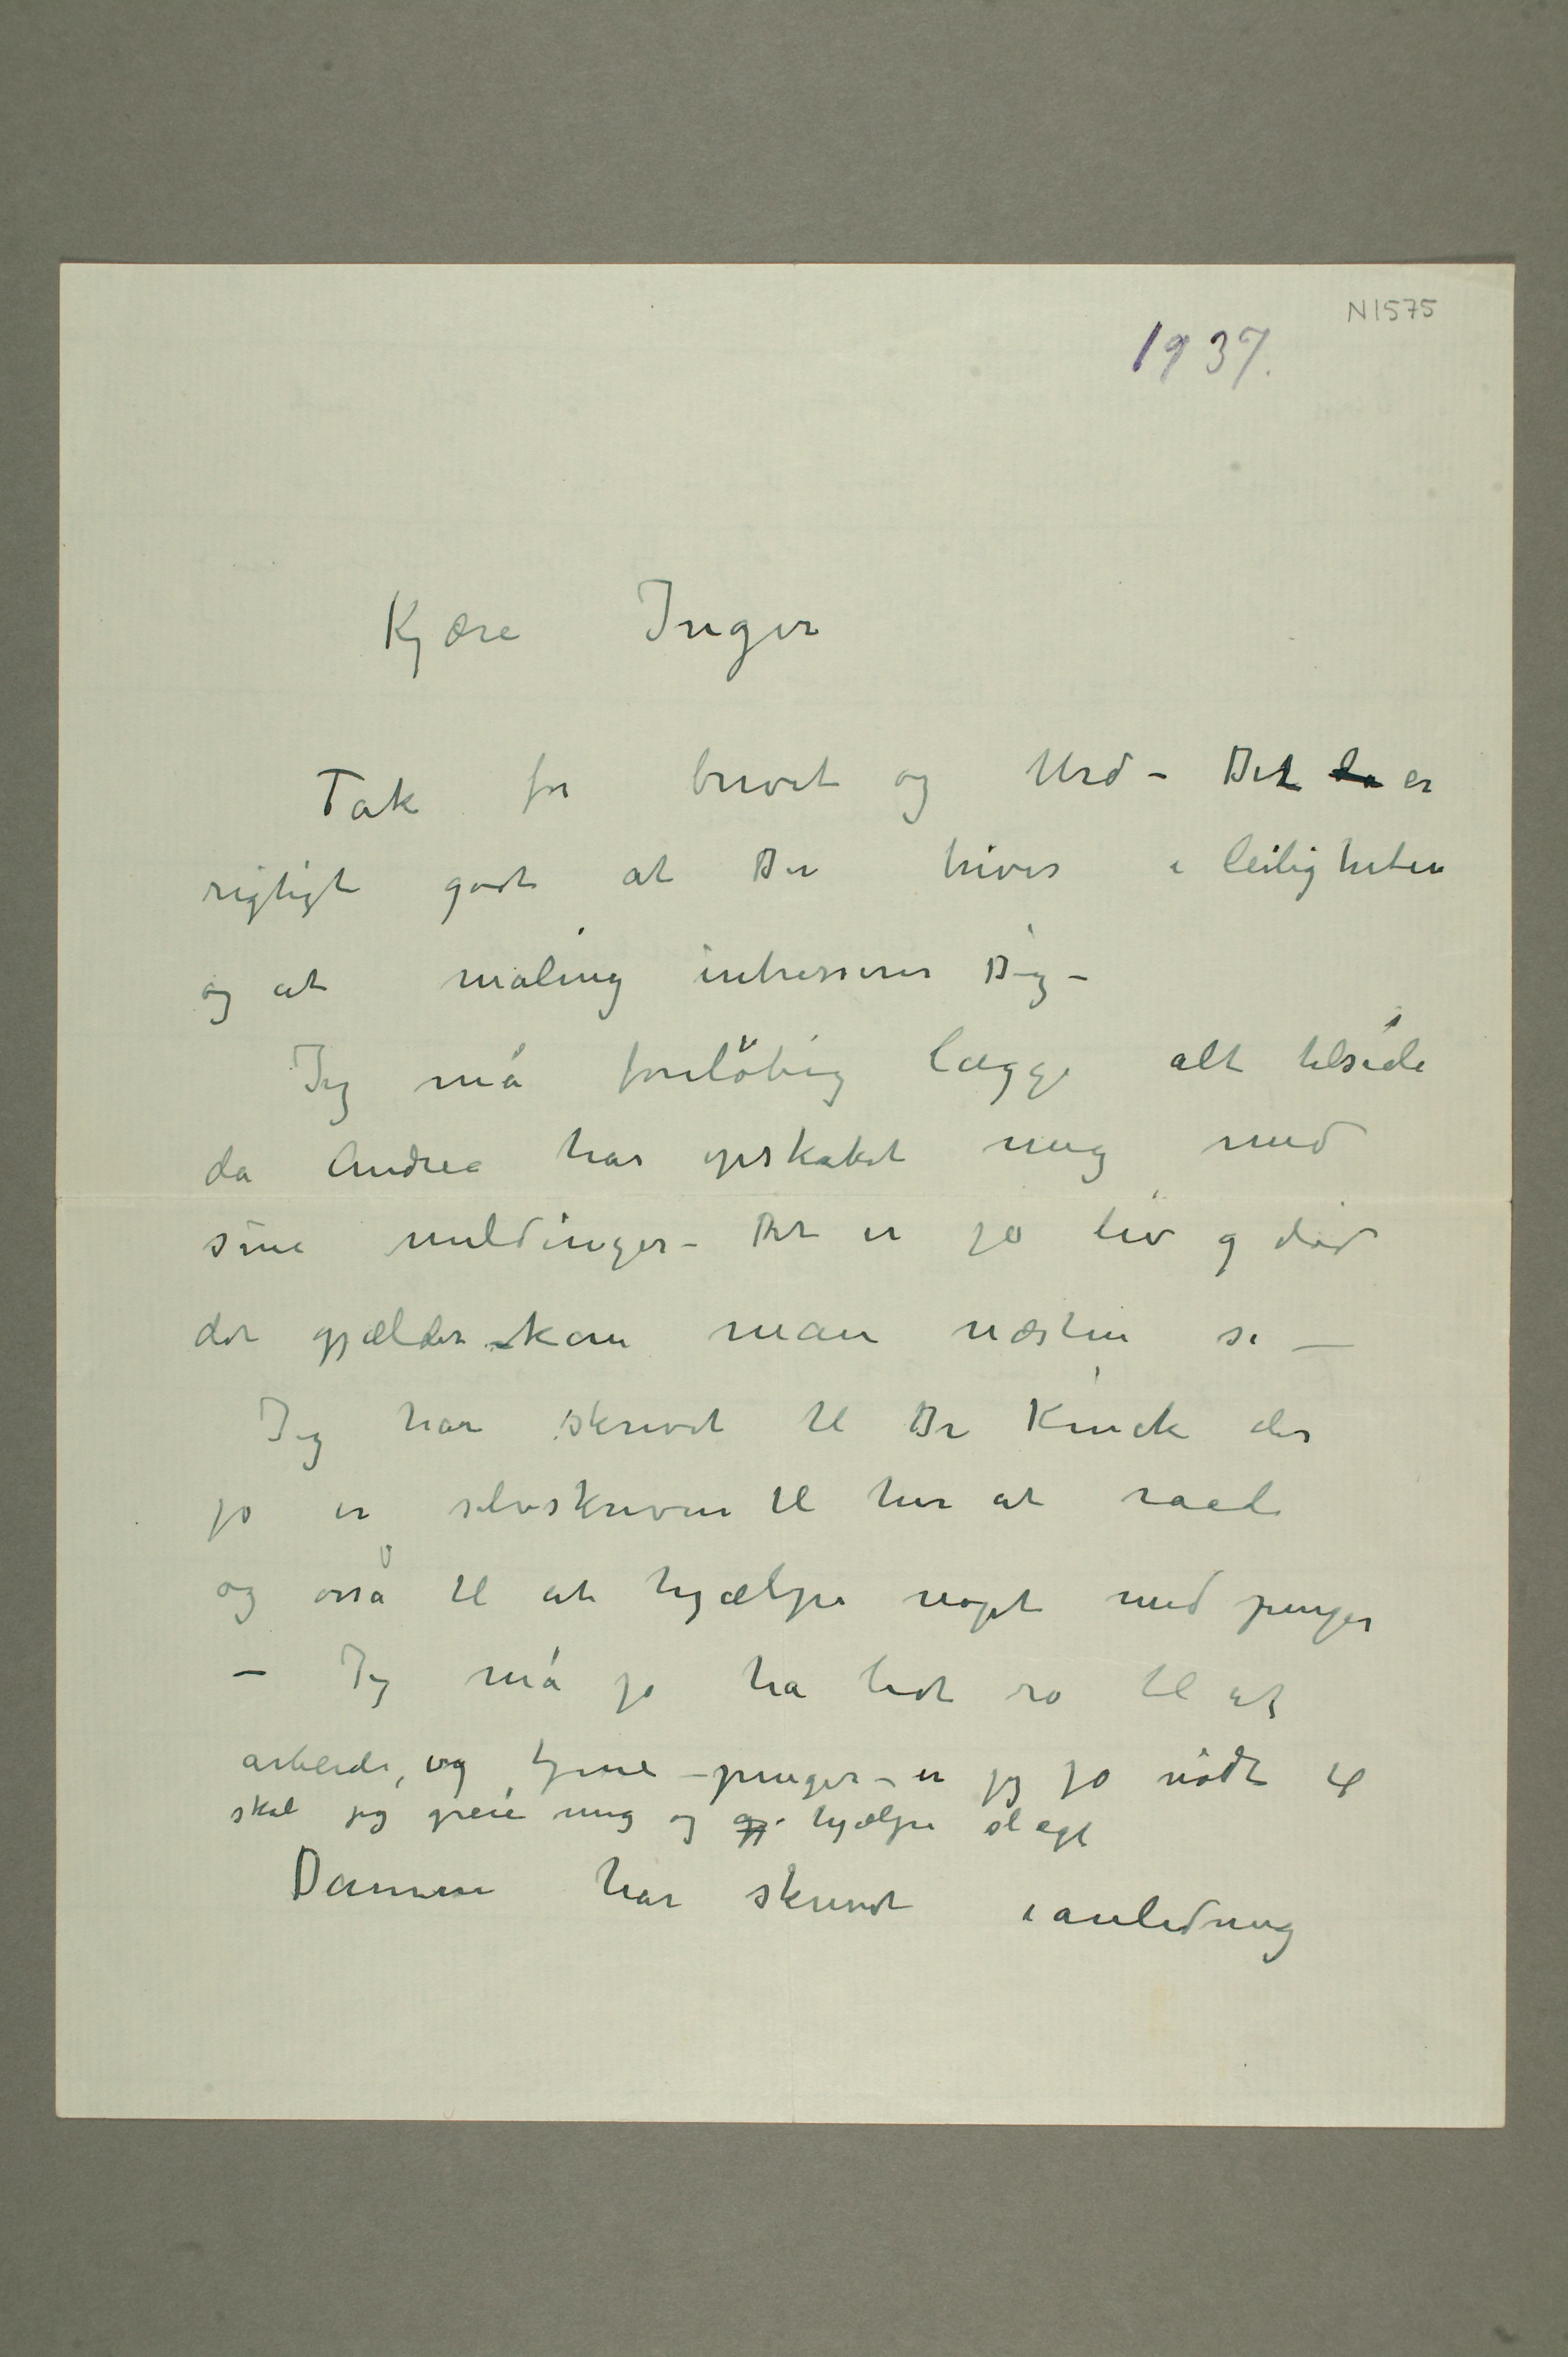 N1575
1937.
Kjære Inger
Tak for brevet og Urd – Det da er
rigtigt godt at Du trives i leiligheten
og at maling intresserer Dig –
Jeg må foreløbig lægge alt tilside
da Andrea har opskaket mig med
sine meldinger – Det er jo liv og død
det gjælder – kan man næsten se –
Jeg har skrevet til Dr Kinck der
jo er selvskreven til her at raade
og osså til at hjælpe noget med penger
– Jeg må jo ha lidt ro til at
arbeide, og tjene – penger – er jeg jo nødt til
skal jeg greie mig og gj hjælpe slægt
Dammen har skrevet i anledning